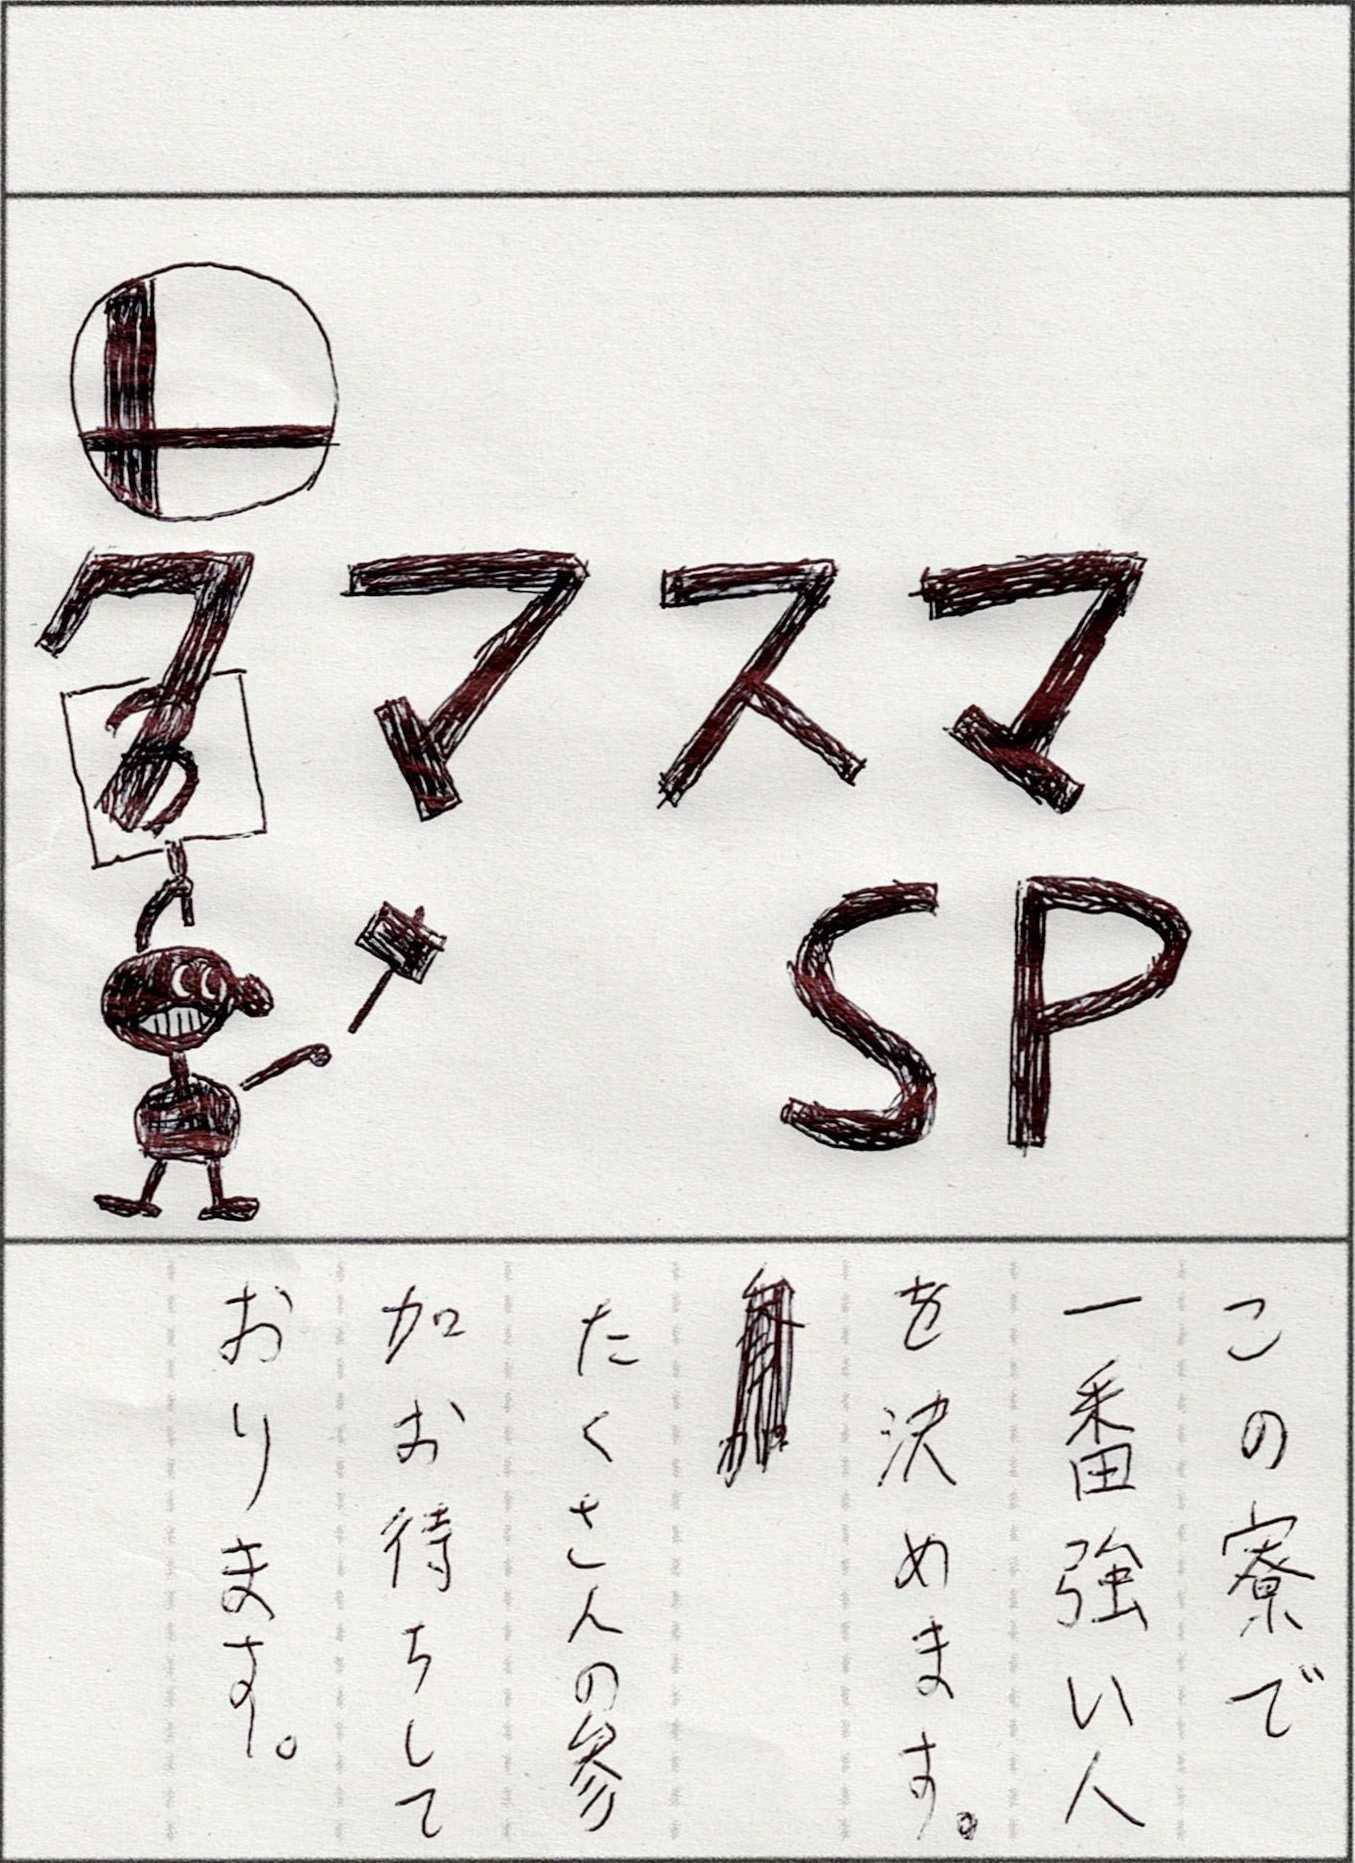 クマスマ
SP
この寮で
一番強い人
を決めます。
たくさんの参
加お待ちして
おります。